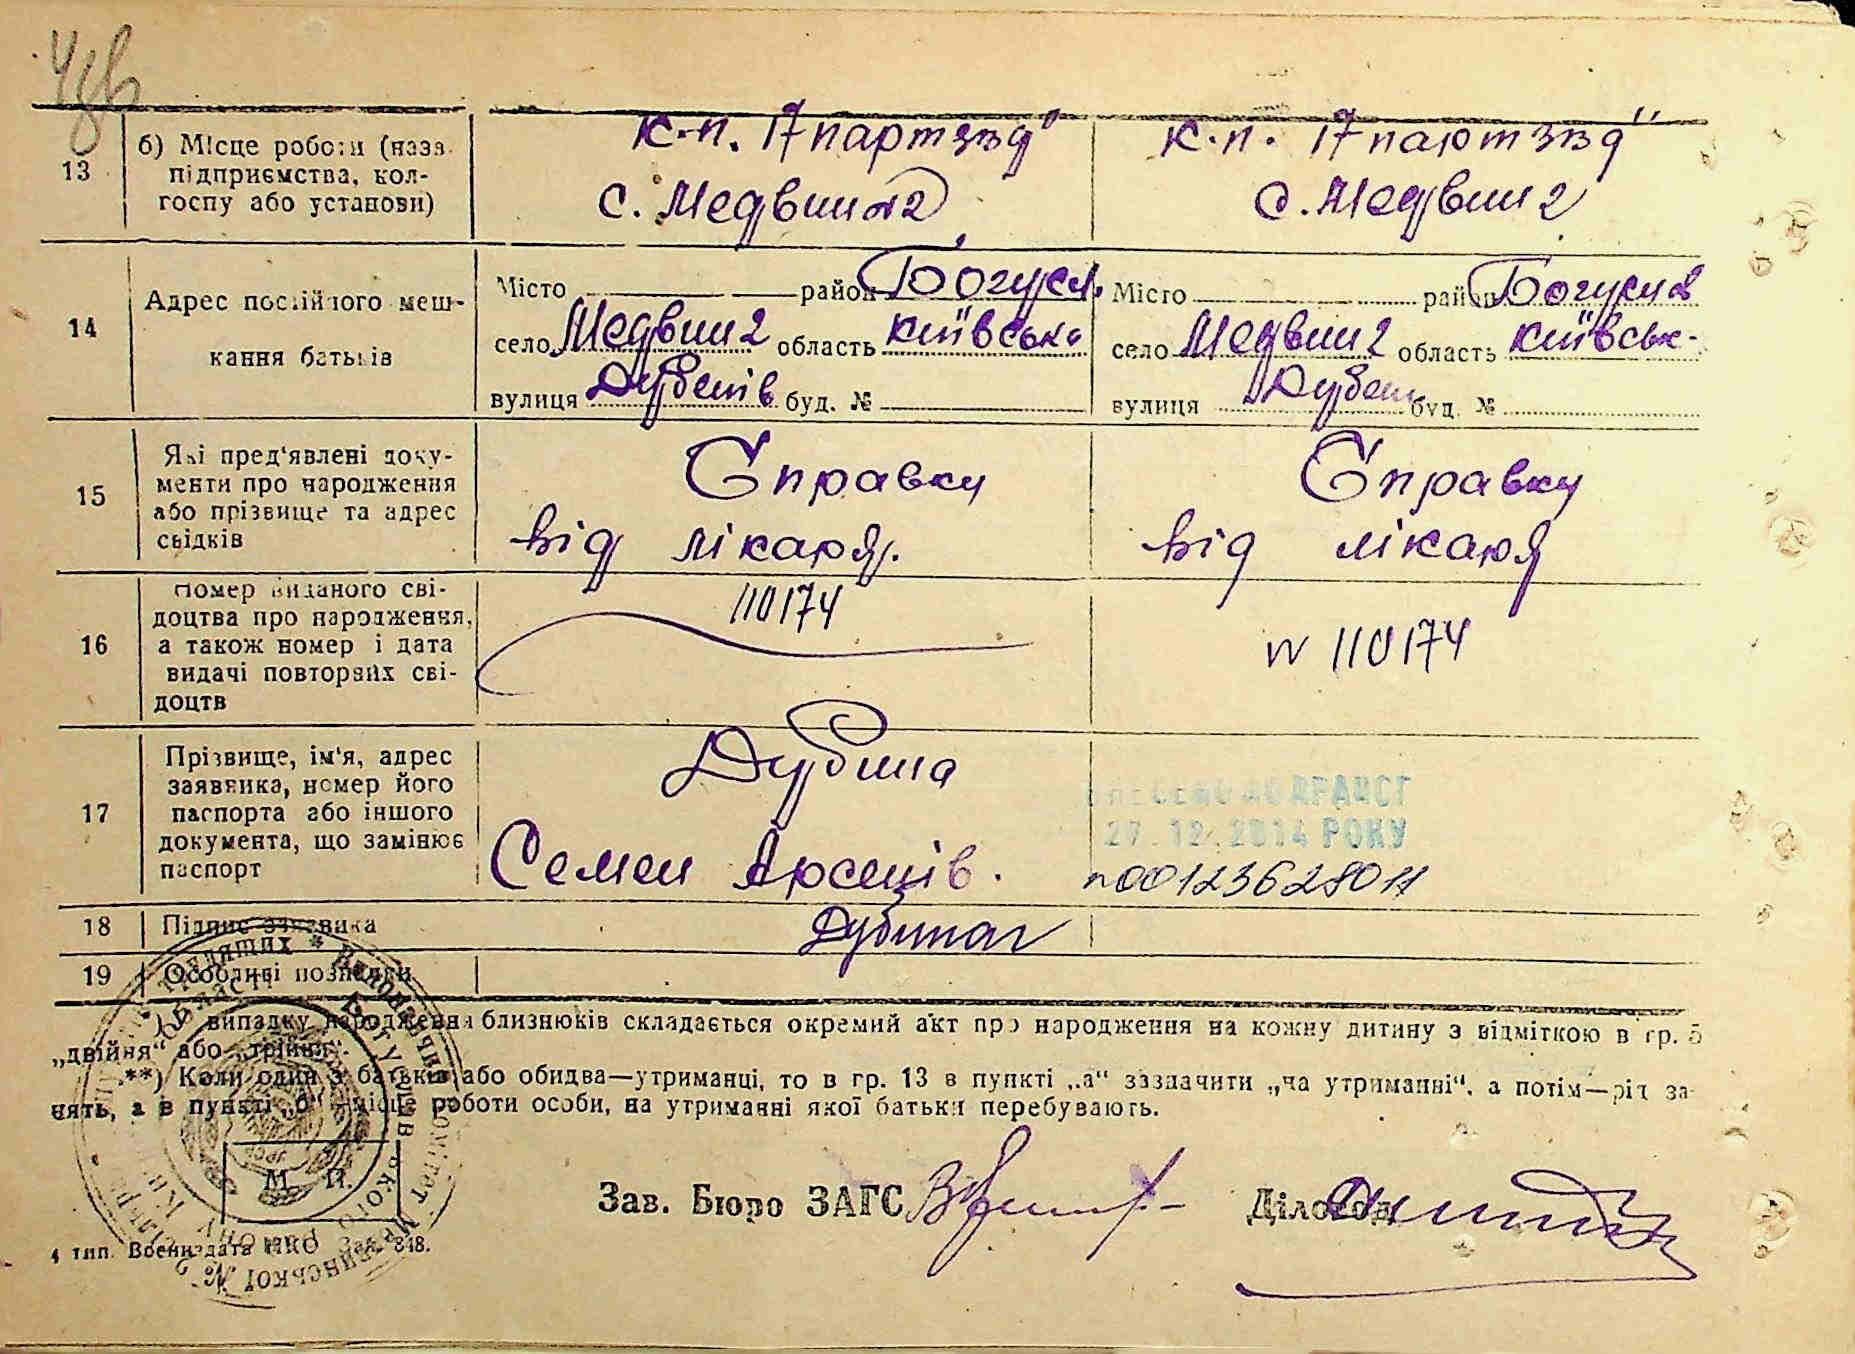 13
б) Місце роботи (назва
підприємства, кол-
госпу або установи)
к.п. 17 партззд"
с. Медвин
к.п. 17 партззд"
с. Медвин
14
Адрес постійного меш-
кання батьків
Місто район Богусл.
село Медвин область Київськ
вулиця Дубенів буд. №
Місто район Богуслав
село Медвин область Київськ-
вулиця Дубен буд. №
15
Які пред'явлені доку-
менти про народження
або прізвище та адрес
свідків
Справку
від лікаря.
Справку
від лікаря
16
Номер виданого сві-
доцтва про народження,
а також номер і дата
видачі повторних сві-
доцтв
110174
N 110174
17
Прізвище, ім'я, адрес
заявника, номер його
паспорта або іншого
документа, що замінює
паспорт
Дубина
Семен Арсенів.
ВНЕСЕНО ДО ДРАЦСГ
27.12.2014 РОКУ
18
Підпис заявника
19
Особливі познач
*) У випадку народження близнюків складається окремий акт про народження на кожну дитину з відміткою в гр. 5
„двійня“ або „трійня“.
**) Коли один з батьків або обидва—утриманці, то в гр. 13 в пункті „а“ зазначити „на утриманні“, а потім—рід за-
нять, а в пункті „б“ місце роботи особи, на утриманні якої батьки перебувають.
М. П.
Зав. Бюро ЗАГС
Діловод
4 тип. Воениздата НКО Зак. 848.